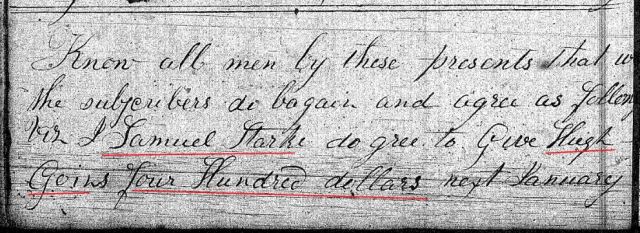 Know all men by these presents that w
the subscribers do bagain and agree as follow
Viz I Samuel Starke do gree to Give Hugh
Goins four Hundred dollars next January